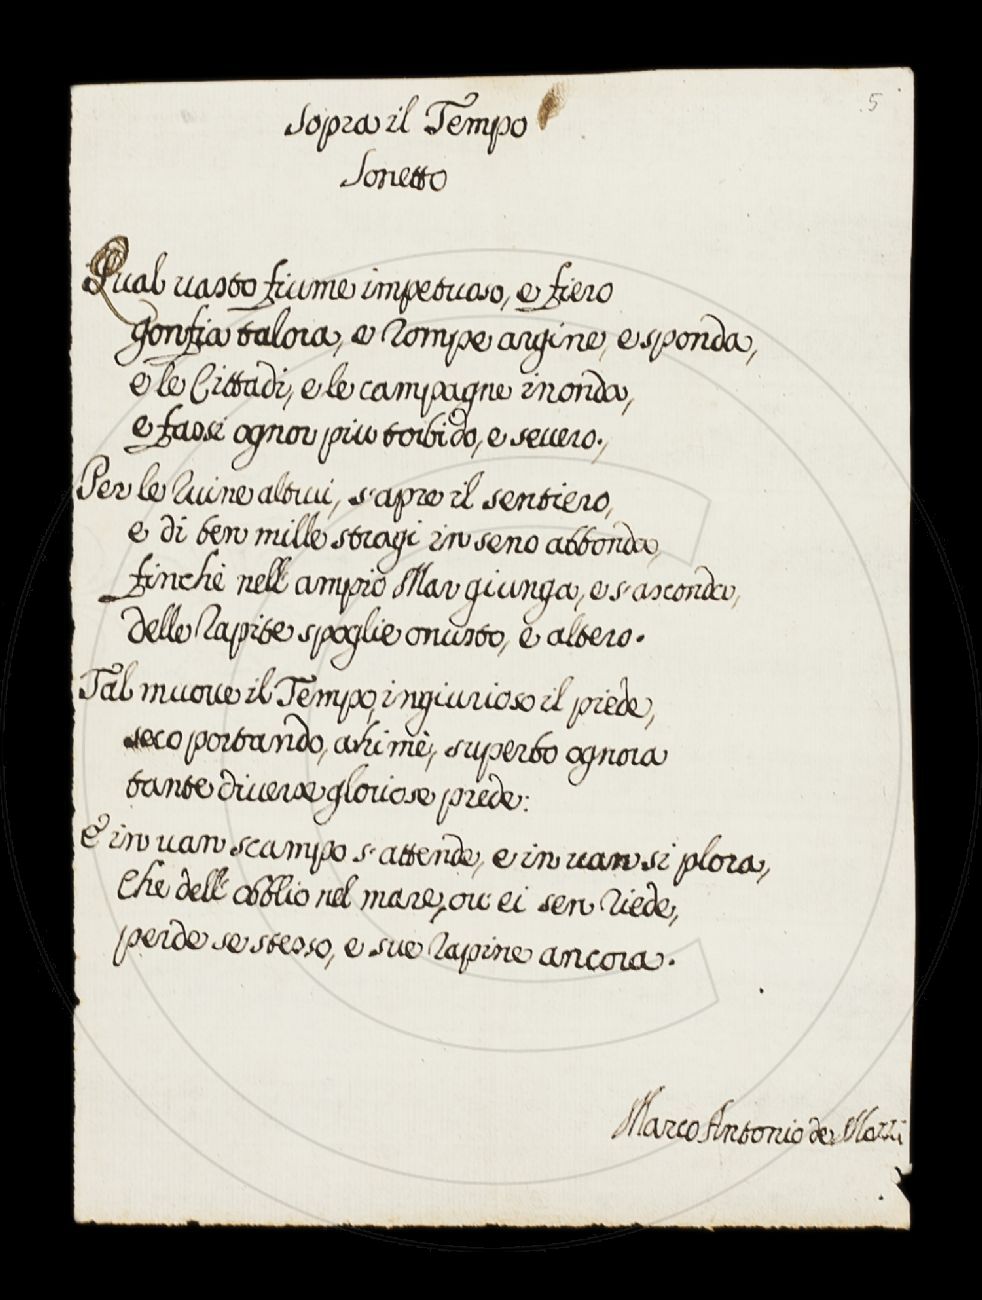 5
Sopra il Tempo
Sonetto
Qual uasto fiume impetuoso, e fiero
gonfia talora, e rompe argine, e sponda,
e le Cittadi, e le campagne inonda,
e fassi ognor piu torbido, e seuero.,
Per le ruine altrui, s'apre il sentiero,
e di ben mille stragi in seno abbonda,
finchè nell'ampio Mar giunga, e s'asconda,
delle rapite spoglie onusto, e altero.
Tal muoue il Tempo ingiurioso il piede,
seco portando, ahimè, superbo ognora
tante diuerse gloriose prede:
E in uan scampo s'attende, e in uan si plora,
Che dell'obblio nel mare, ou'ei sen riede,
perde se stesso, e sue rapine ancora.
Marco Antonio de Mozzi